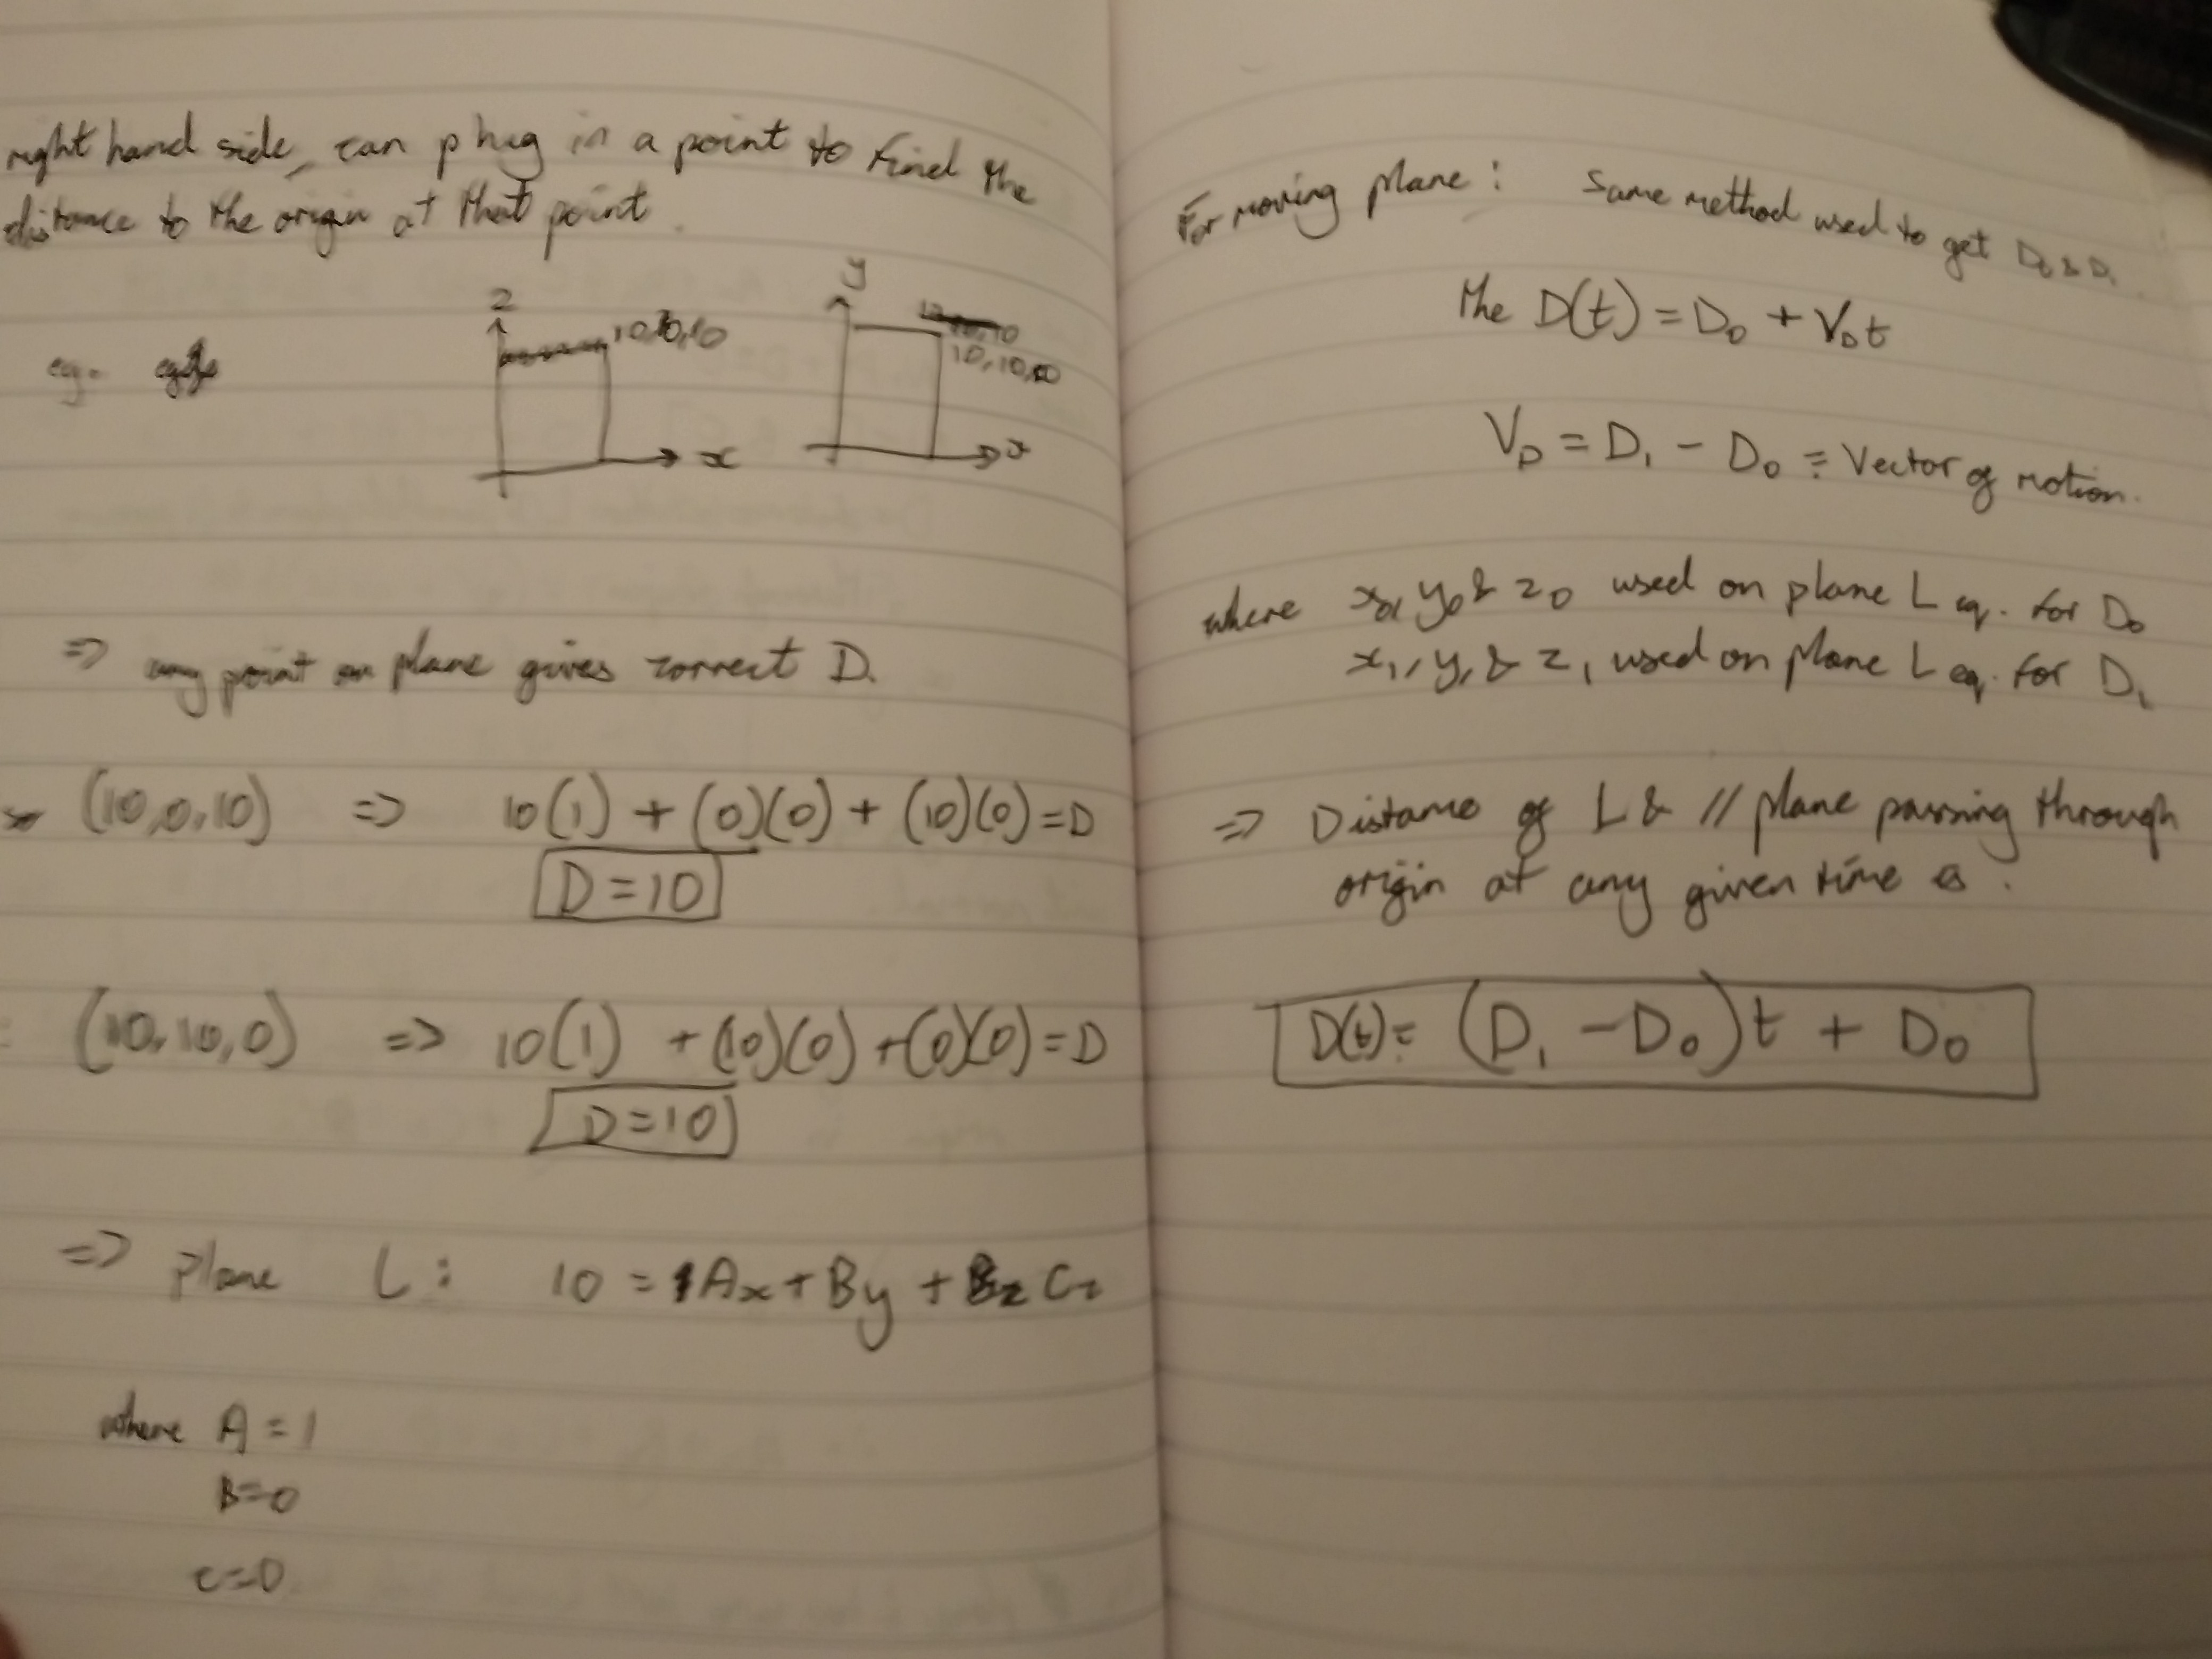 right hand side, can plug in a point to find the
distance to the origin at that point.
eg.
z
10,10,10
x
y
10,10,10
x
=> any point on plane gives correct D.
(10,0,10) => 10(1) + (0)(0) + (10)(0) = D
D = 10
(10,10,0) => 10(1) + (10)(0) + (0)(0) = D
D = 10
=> plane L: 10 = Ax + By + Cz
where A = 1
B = 0
C = 0
For moving plane: Same method used to get D₀ & D₁
the D(t) = D₀ + V_D t
V_D = D₁ - D₀ = Vector of motion.
where x₀, y₀ & z₀ used on plane L eq. for D₀
x₁, y₁ & z₁ used on plane L eq. for D₁
=> Distance of L & // plane passing through
origin at any given time is :
D(t) = (D₁ - D₀)t + D₀